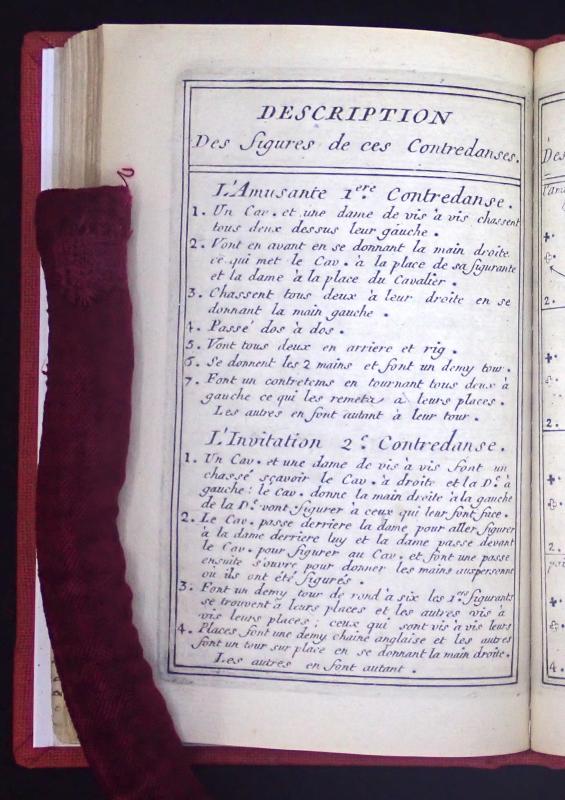 DESCRIPTION
Des figures de ces Contredanses.
L'Amusante 1ere Contredanse.
1. Un Cav. et une dame de vis à vis chassent
tous deux dessus leur gauche.
2. Vont en avant en se donnant la main droite
ce qui met le Cav. à la place de sa figurante
et la dame à la place du Cavalier.
3. Chassent tous deux à leur droite en se
donnant la main gauche.
4. Passé dos à dos.
5. Vont tous deux en arriere et rig.
6. Se donnent les 2 mains et font un demy tour.
7. Font un contretems en tournant tous deux à
gauche ce qui les remetz à leurs places.
Les autres en font autant à leur tour.
L'Invitation 2e Contredanse.
1. Un Cav. et une dame de vis à vis font un
chassé sçavoir le Cav. à droite et la De. à
gauche: le Cav. donne la main droite à la gauche
de la De. vont figurer à ceux qui leur font face.
2. Le Cav. passe derriere la dame pour aller figurer
à la dame derriere luy et la dame passe devant
le Cav. pour figurer au Cav. et font une passe
ensuite s'ouvre pour donner les mains auspersonne
où ils ont été figurés.
3. Font un demy tour de rond à six les 1ers figurants
se trouvent à leurs places et les autres vis à
vis leurs places; ceux qui sont vis à vis leurs
4. Places font une demy chaine anglaise et les autres
font un tour sur place en se donnant la main droite.
Les autres en font autant.
Des
2.
2.
2.
4.